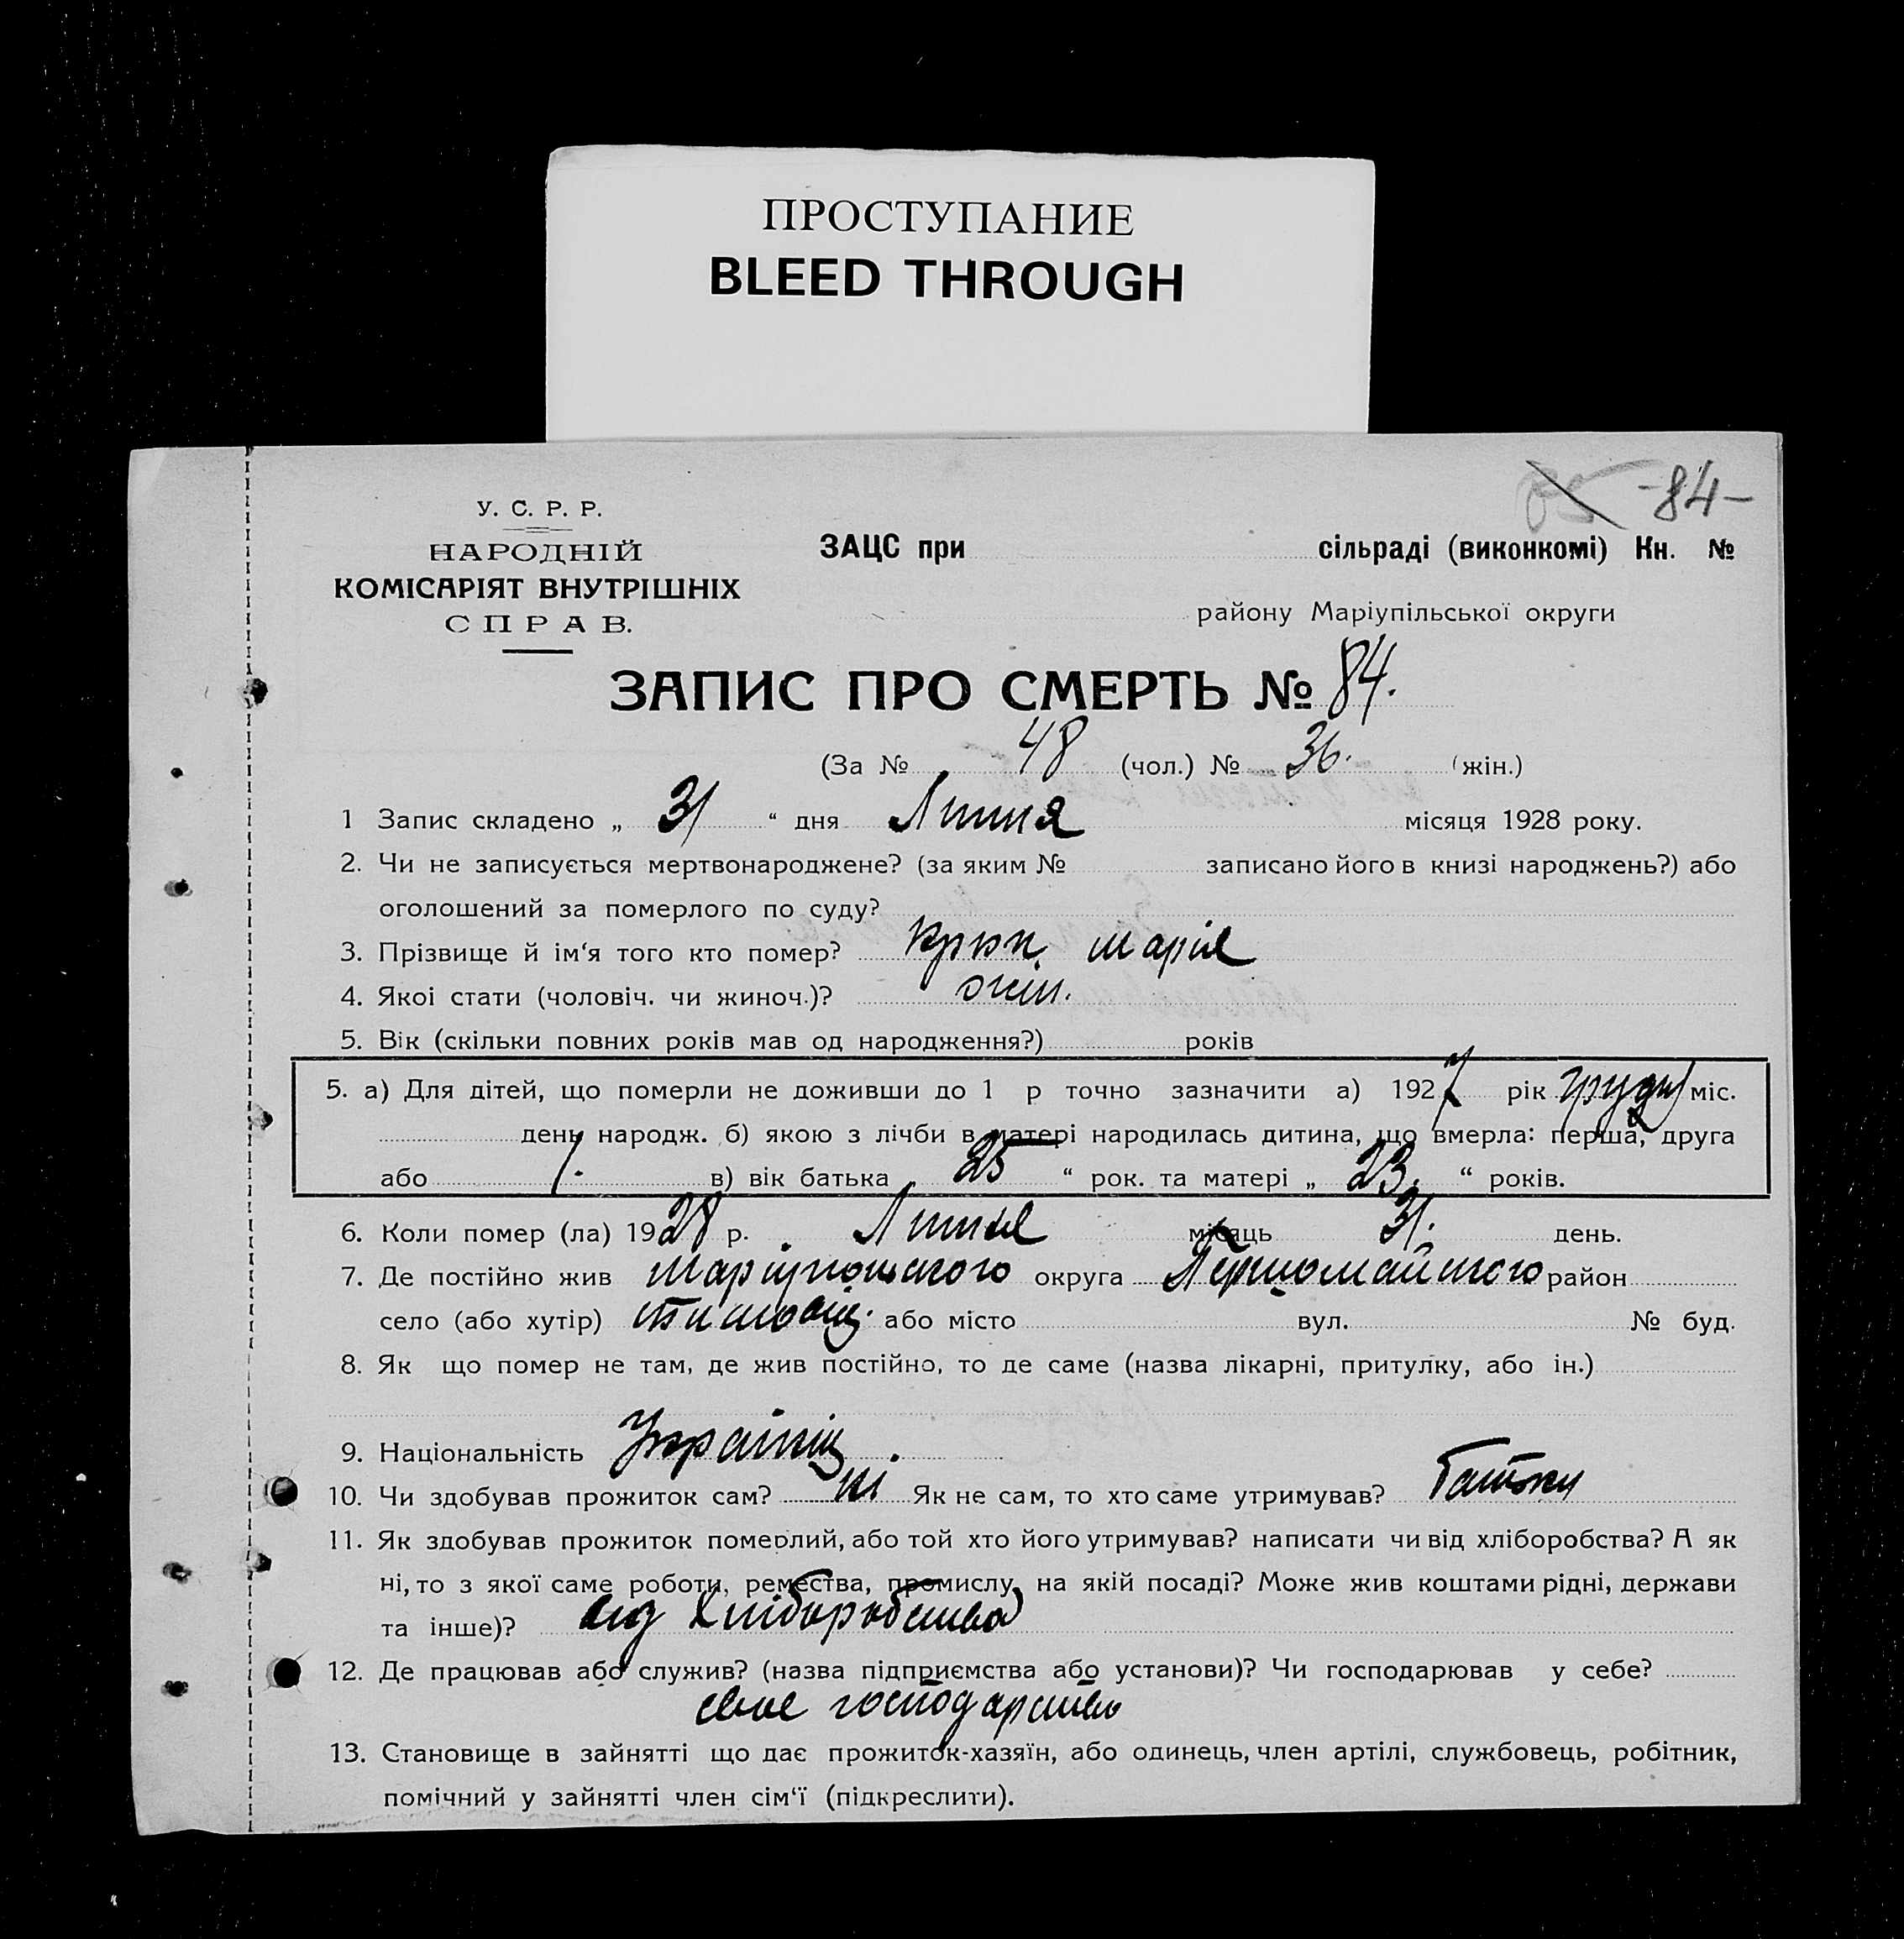 ПРОСТУПАНИЕ
BLEED THROUGH
-84-
У. С. Р. Р.
НАРОДНІЙ
КОМІСАРІЯТ ВНУТРІШНІХ
СПРАВ.
ЗАЦС при сільраді (виконкомі) Кн. №
району Маріупільської округи
ЗАПИС ПРО СМЕРТЬ № 84.
(За № 48 (чол.) № 36. (жін.)
1 Запис складено „ 31 “ дня Липня місяця 1928 року.
2. Чи не записується мертвонароджене? (за яким № записано його в книзі народжень?) або
оголошений за померлого по суду?
3. Прізвище й ім‘я того кто помер? Крюк Марія
4. Якоі стати (чоловіч. чи жиноч.)? жін.
5. Вік (скільки повних років мав од народження?) років
5. а) Для дітей, що померли не доживши до 1 р точно зазначити а) 1927 рік грудн міс.
день народж. б) якою з лічби в матері народилась дитина, що вмерла: перша, друга
або 1. в) вік батька „ 25 “ рок. та матері „ 23. “ років.
6. Коли помер (ла) 1928 р. Липня місяць 31. день.
7. Де постійно жив Маріупольського округа Першомайського район
село (або хутір) або місто вул. № буд.
8. Як що помер не там, де жив постійно, то де саме (назва лікарні, притулку, або ін.)
9. Національність Україниц.
10. Чи здобував прожиток сам? ні Як не сам, то хто саме утримував? Батьки
11. Як здобував прожиток померлий, або той хто його утримував? написати чи від хліборобства? А як
ні, то з якої саме роботи, ремества, промислу, на якій посаді? Може жив коштами рідні, держави
та інше)? від Хліборобства
12. Де працював або служив? (назва підприємства або установи)? Чи господарював у себе?
своє господарство
13. Становище в зайнятті що дає прожиток-хазяїн, або одинець, член артілі, службовець, робітник,
помічний у зайнятті член сім‘ї (підкреслити).